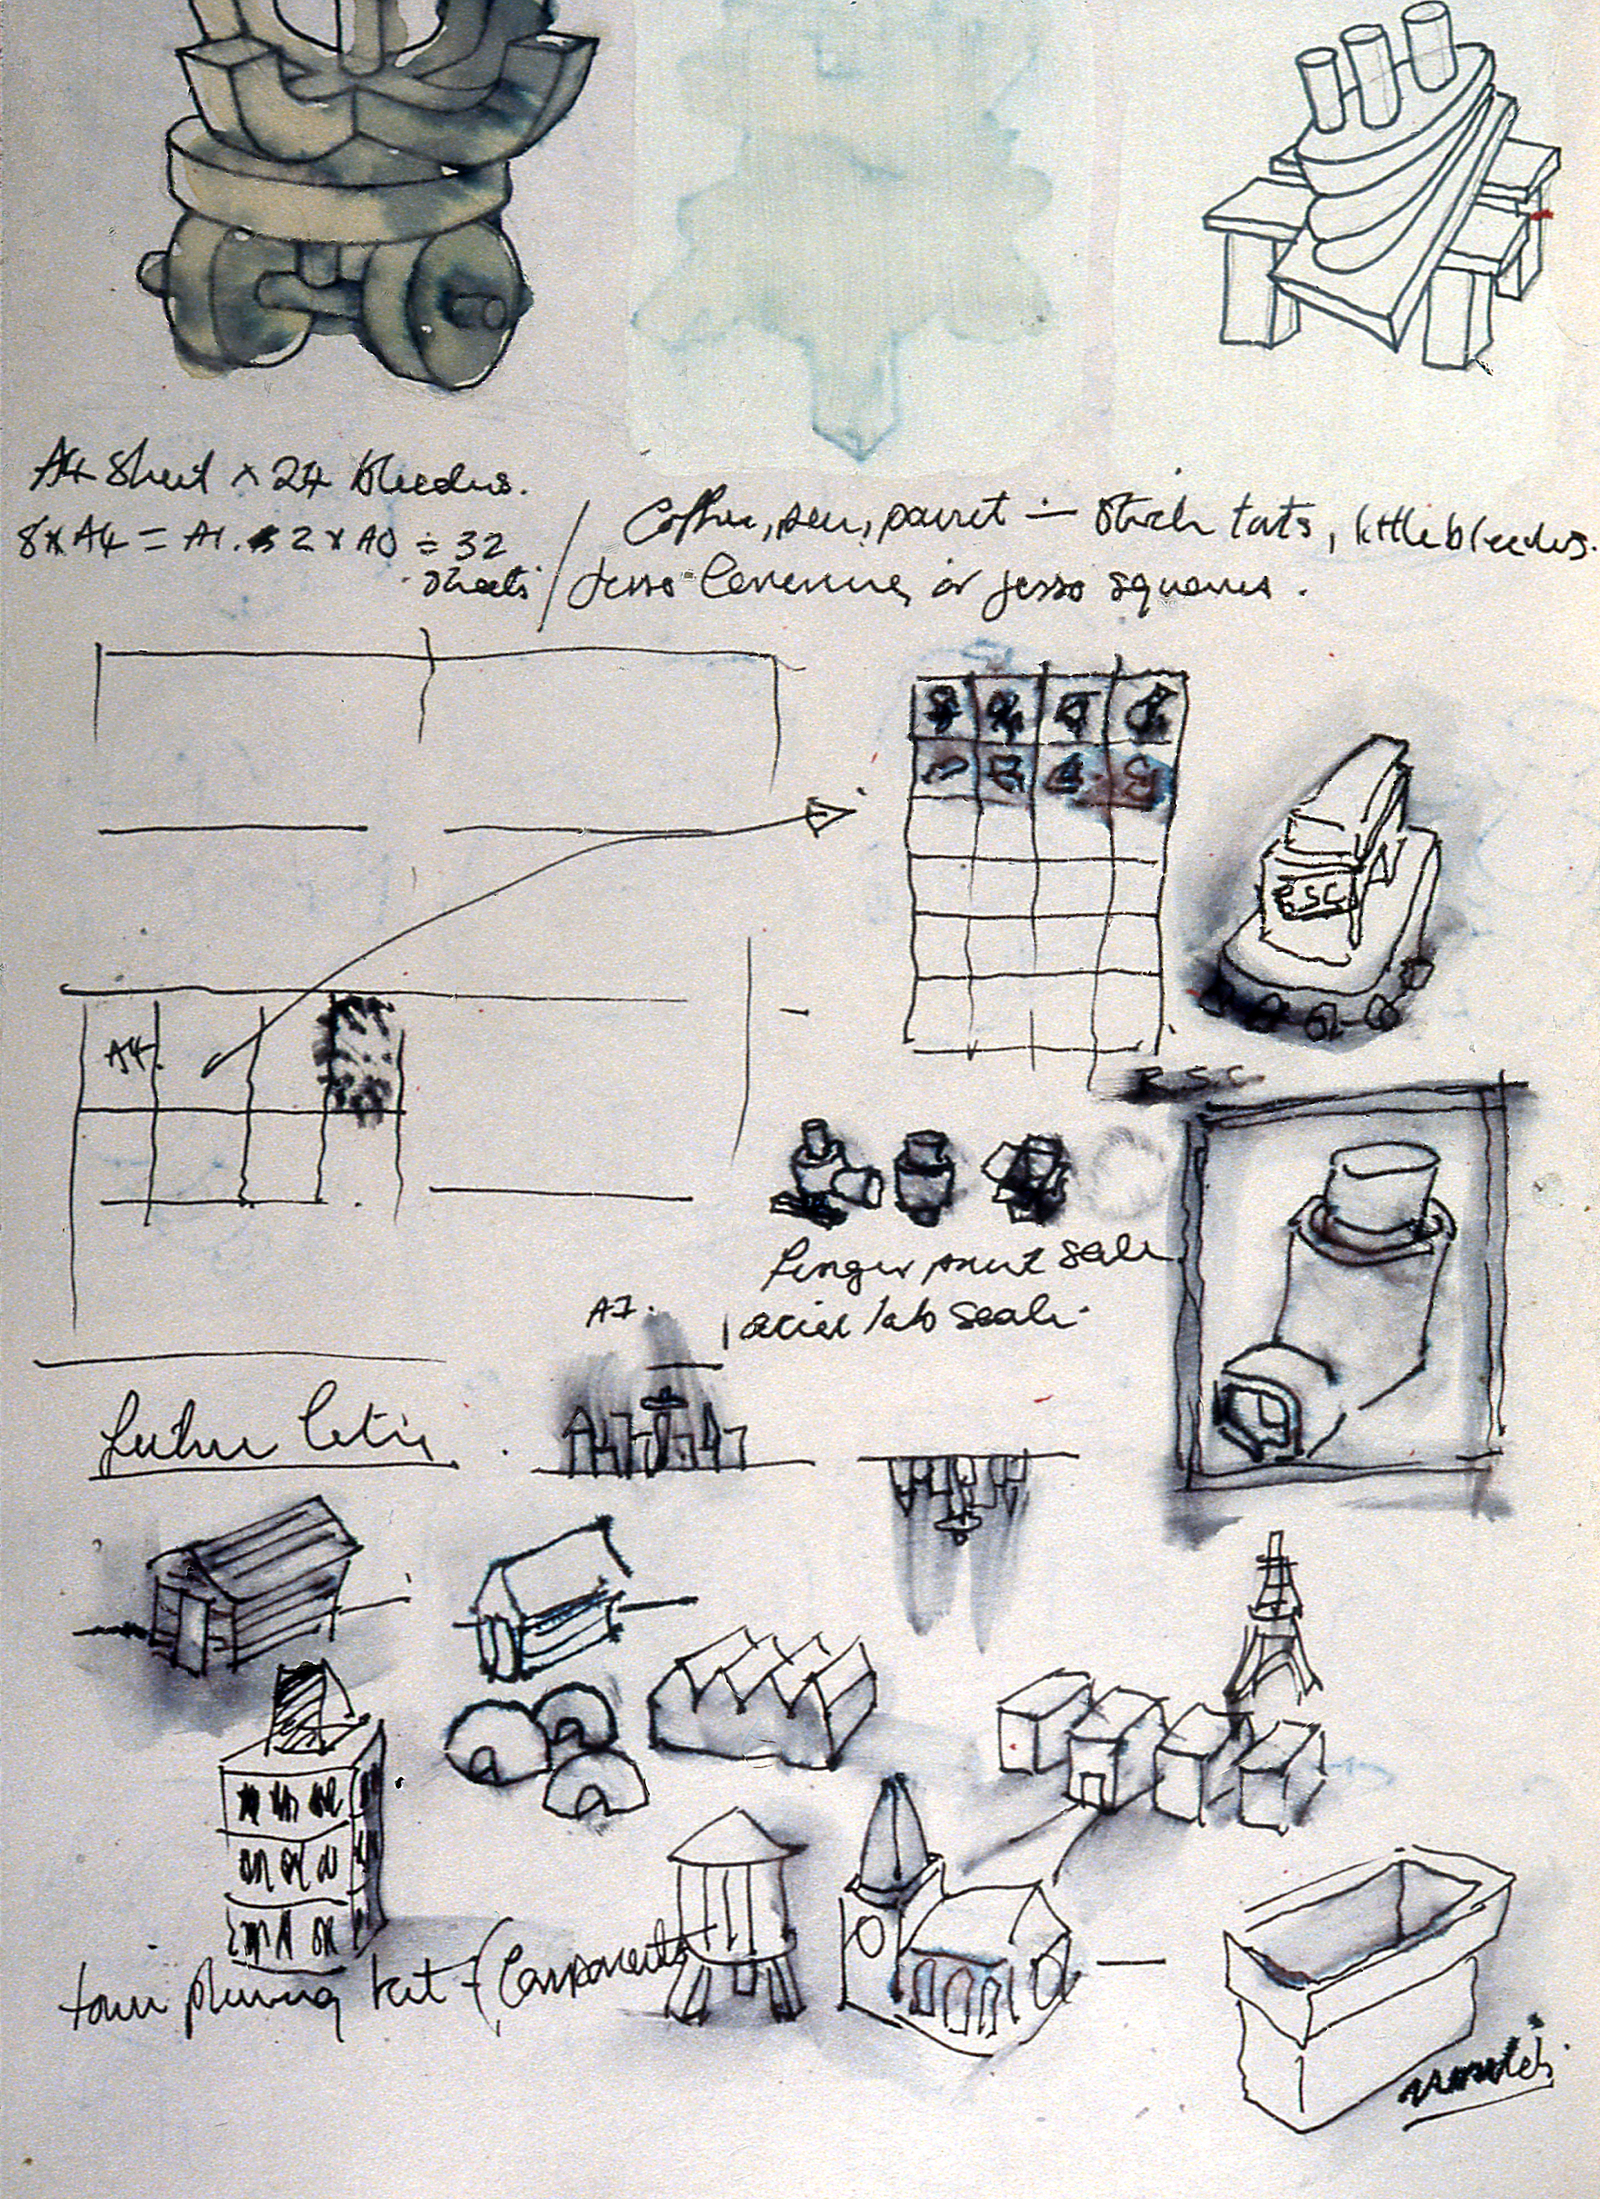 A4 Sheet x 24 bleeders.
8 x A4 = A1. 2 x A0 = 32
sheets
Coffee, pen, paint — Stick tats, little bleeders.
or gesso squares.
A4
RSC
RSC
Finger print scale
scale.
A1.
Future Cities
town planning kit - (Components